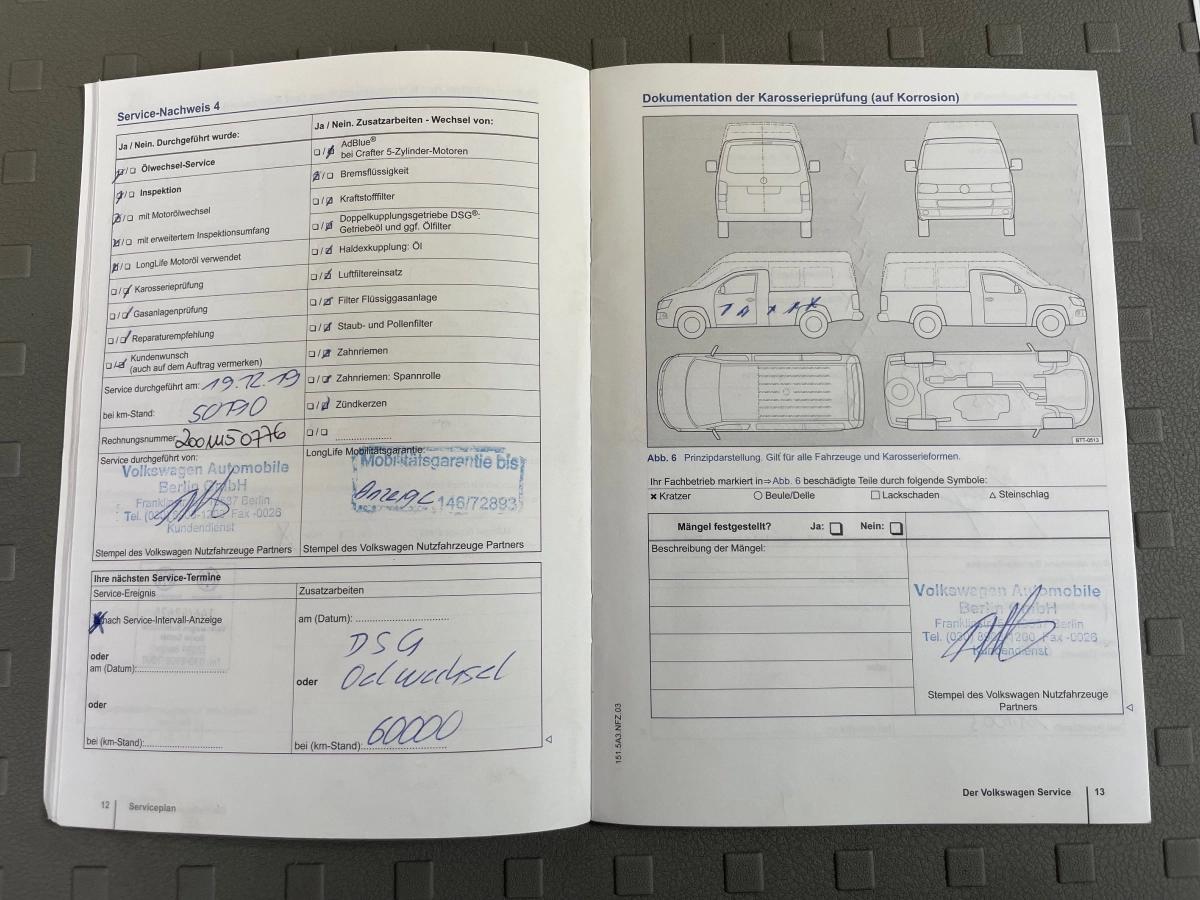 Service-Nachweis 4
Ja / Nein. Durchgeführt wurde:
Ölwechsel-Service
Inspektion
mit Motorölwechsel
mit erweitertem Inspektionsumfang
LongLife Motoröl verwendet
Karosserieprüfung
Gasanlagenprüfung
Reparaturempfehlung
Kundenwunsch
(auch auf dem Auftrag vermerken)
Service durchgeführt am: 19.12.19
bei km-Stand:
Rechnungsnummer
Service durchgeführt von:
Volkswagen Automobile
Berlin GmbH
Kundendienst
Stempel des Volkswagen Nutzfahrzeuge Partners
Ja / Nein. Zusatzarbeiten - Wechsel von:
AdBlue®
bei Crafter 5-Zylinder-Motoren
Bremsflüssigkeit
Kraftstofffilter
Doppelkupplungsgetriebe DSG®-
Getriebeöl und ggf. Ölfilter
Haldexkupplung: Öl
Luftfiltereinsatz
Filter Flüssiggasanlage
Staub- und Pollenfilter
Zahnriemen
Zahnriemen: Spannrolle
Zündkerzen
LongLife Mobilitätsgarantie:
Mobilitätsgarantie bis
Anzeige 146/72893
Stempel des Volkswagen Nutzfahrzeuge Partners
Ihre nächsten Service-Termine
Service-Ereignis
nach Service-Intervall-Anzeige
oder
am (Datum):
oder
bei (km-Stand):
Zusatzarbeiten
am (Datum):
DSG
oder Oelwechsel
60000
bei (km-Stand):
12 Serviceplan
Dokumentation der Karosserieprüfung (auf Korrosion)
BTT-0513
Abb. 6 Prinzipdarstellung. Gilt für alle Fahrzeuge und Karosserieformen.
Ihr Fachbetrieb markiert in⇒Abb. 6 beschädigte Teile durch folgende Symbole:
× Kratzer ○ Beule/Delle □ Lackschaden △ Steinschlag
Mängel festgestellt? Ja: Nein:
Beschreibung der Mängel:
Volkswagen Automobile
Berlin GmbH
Kundendienst
Stempel des Volkswagen Nutzfahrzeuge
Partners
151.5A3.NFZ.03
Der Volkswagen Service 13